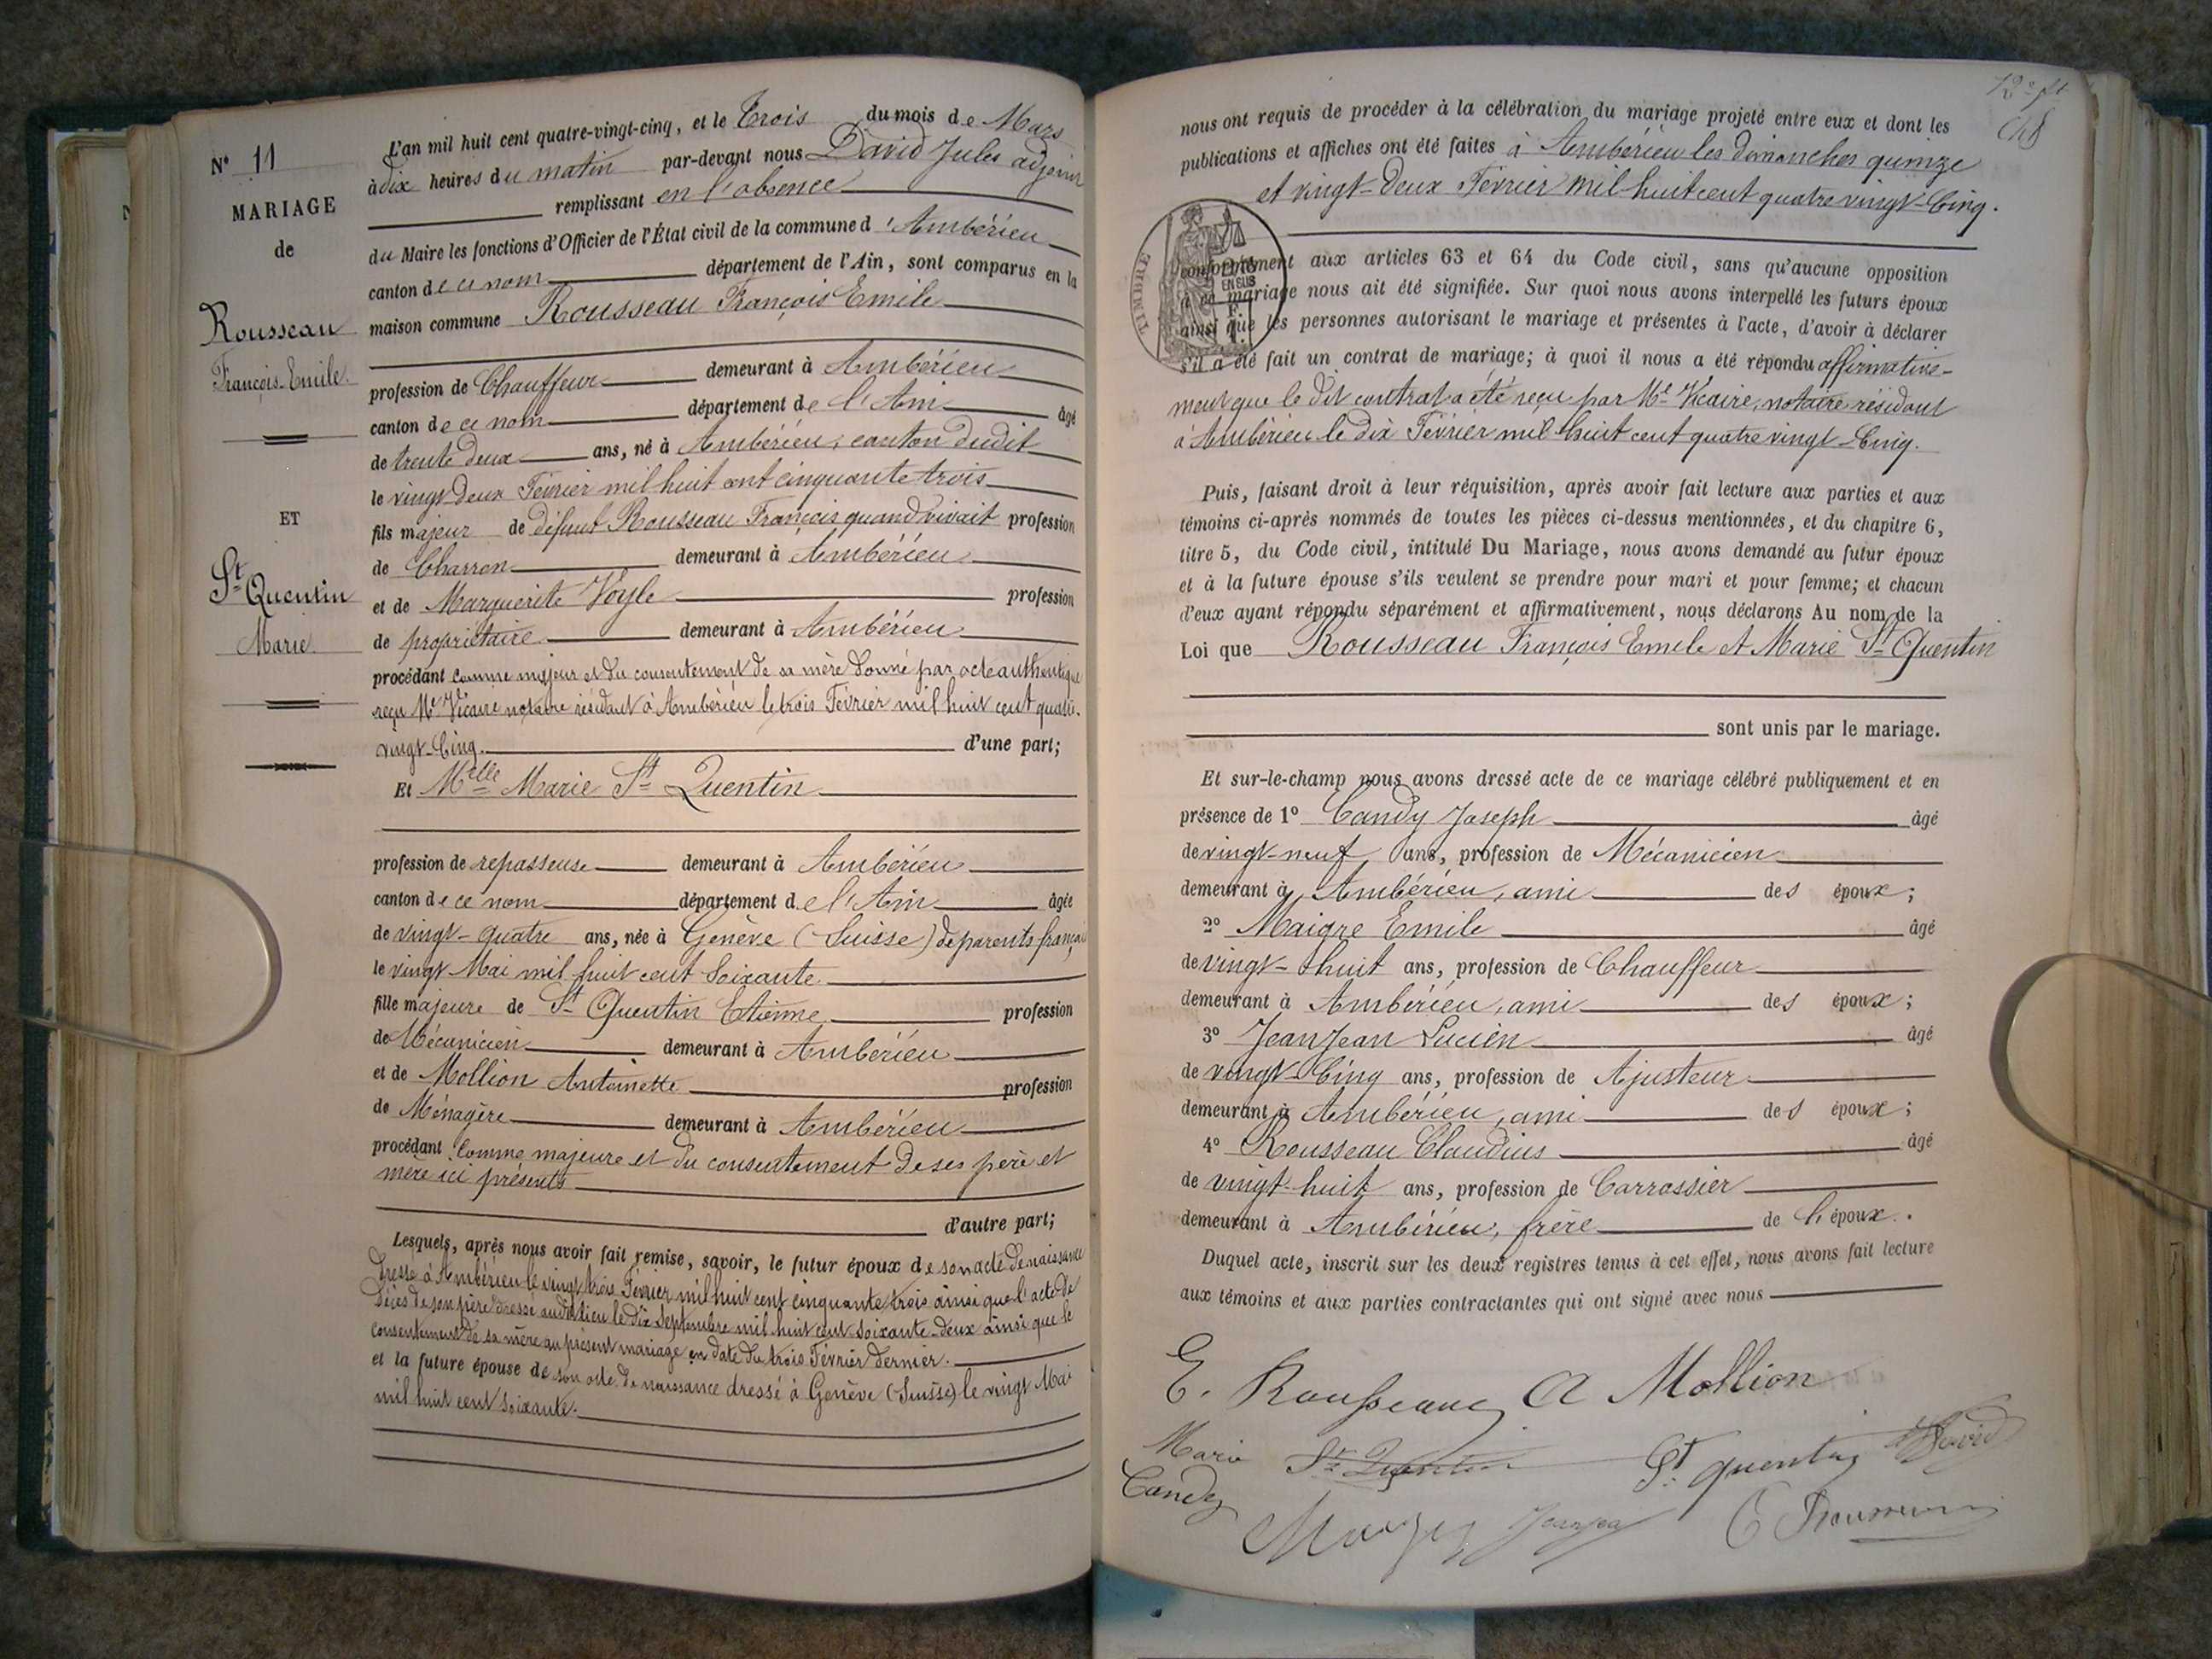 N° 11
MARIAGE
de
Rousseau
François-Emile
ET
St Quentin
Marie
L'an mil huit cent quatre-vingt-cinq, et le Trois du mois de Mars
à dix heures du matin par-devant nous David Jules adjoint
remplissant en l'absence
du Maire les fonctions d'Officier de l'État civil de la commune d'Ambérieu
canton de ce nom département de l'Ain, sont comparus en la
maison commune Rousseau François Emile
profession de Chauffeur demeurant à Ambérieu
canton de ce nom département de l'Ain âgé
de trente deux ans, né à Ambérieu, canton dudit
le vingt-deux Février mil huit cent cinquante trois
fils majeur de défunt Rousseau François quand vivait profession
de Charron demeurant à Ambérieu
et de Marguerite Voyle profession
de propriétaire demeurant à Ambérieu
procédant comme majeur et du consentement de sa mère donné par acte authentique
reçu Me Vicaire notaire résidant à Ambérieu le trois Février mil huit cent quatre-
vingt-Cinq. d'une part;
Et Melle Marie St Quentin
profession de repasseuse demeurant à Ambérieu
canton de ce nom département de l'Ain âgée
de vingt-quatre ans, née à Genève (Suisse) de parents français
le vingt Mai mil huit cent soixante
fille majeure de St Quentin Etienne profession
de Mécanicien demeurant à Ambérieu
et de Mollion Antoinette profession
de Ménagère demeurant à Ambérieu
procédant Comme majeure et du consentement de ses père et
mère ici présents
d'autre part;
Lesquels, après nous avoir fait remise, savoir, le futur époux de son acte de naissance
dressé à Ambérieu le vingt trois Février mil huit cent cinquante trois ainsi que l'acte de
décès de son père dressé audit lieu le dix Septembre mil huit cent soixante-deux ainsi que le
consentement de sa mère au présent mariage en date du trois Février dernier.
et la future épouse de son acte de naissance dressé à Genève (Suisse) le vingt Mai
mil huit cent soixante.
nous ont requis de procéder à la célébration du mariage projeté entre eux et dont les
publications et affiches ont été faites à Ambérieu les dimanches quinze
et vingt-deux Février mil huit cent quatre vingt-Cinq.
TIMBRE
EN SUS
conformément aux articles 63 et 64 du Code civil, sans qu'aucune opposition
à ce mariage nous ait été signifiée. Sur quoi nous avons interpellé les futurs époux
ainsi que les personnes autorisant le mariage et présentes à l'acte, d'avoir à déclarer
s'il a été fait un contrat de mariage; à quoi il nous a été répondu affirmative-
ment que le dit contrat a été reçu par Me Vicaire, notaire résidant
à Ambérieu le dix Février mil huit cent quatre vingt-Cinq.
Puis, faisant droit à leur réquisition, après avoir fait lecture aux parties et aux
témoins ci-après nommés de toutes les pièces ci-dessus mentionnées, et du chapitre 6,
titre 5, du Code civil, intitulé Du Mariage, nous avons demandé au futur époux
et à la future épouse s'ils veulent se prendre pour mari et pour femme; et chacun
d'eux ayant répondu séparément et affirmativement, nous déclarons Au nom de la
Loi que Rousseau François Emile et Marie St Quentin
sont unis par le mariage.
Et sur-le-champ nous avons dressé acte de ce mariage célébré publiquement et en
présence de 1° Candy Joseph âgé
de vingt-neuf ans, profession de Mécanicien
demeurant à Ambérieu, ami des époux;
2° Maigre Emile âgé
de vingt-huit ans, profession de Chauffeur
demeurant à Ambérieu, ami des époux;
3° JeanJean Lucien âgé
de vingt-Cinq ans, profession de Ajusteur
demeurant à Ambérieu, ami des époux;
4° Rousseau Claudius âgé
de vingt-huit ans, profession de Carrossier
demeurant à Ambérieu, frère de l'époux.
Duquel acte, inscrit sur les deux registres tenus à cet effet, nous avons fait lecture
aux témoins et aux parties contractantes qui ont signé avec nous
E. Rousseau A Mollion
Marie St Quentin St quentin David
Candy
Maigre Jeanjean C Rousseau